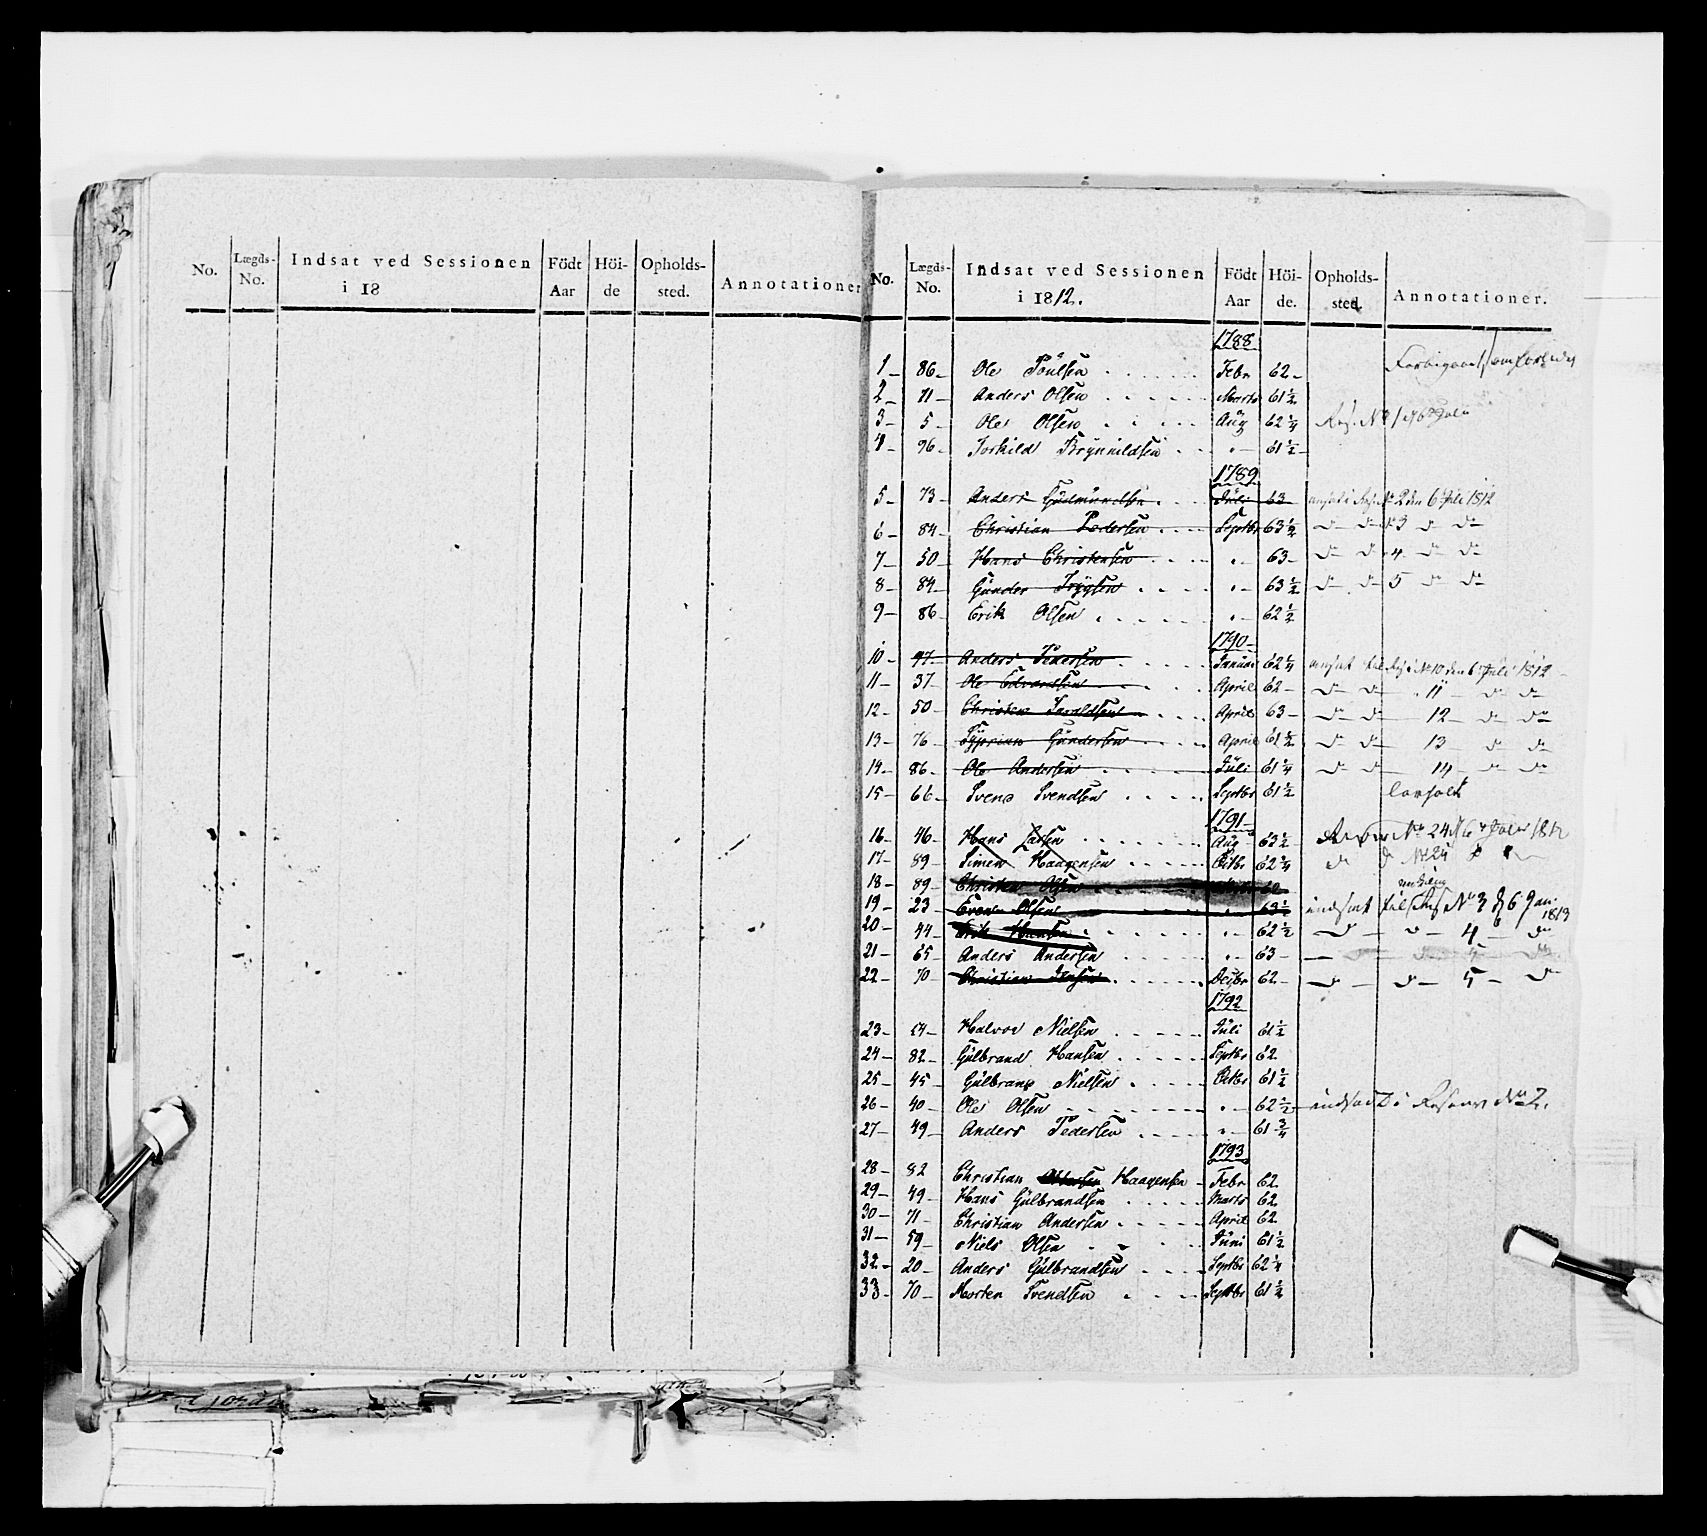 No. Lægds-No. Indsat ved Sessionen i 18 Födt Aar Höi-de Opholds-sted. Annotationer
No. Lægds-No. Indsat ved Sessionen i 1812. Födt Aar Höi-de. Opholds-sted. Annotationer.
1788
1 86 Ole Poulsen Febr 62 Forbigaaet
2 71 Anders Olsen Marts 61½
3 5 Ole Olsen Aug 62¼
4 96 Torkild Brynnildsen " 61½
1789
5 73 Anders Gudmundsen Juli 63 2 den 6 Juli 1812
6 84 Christian Pedersen Septbr 63½ d d 3 d d
7 50 Hans Christensen " 63 d d 4 d d
8 84 Gunder Trygsen " 63½ d d 5 d d
9 86 Erik Olsen " 62½
1790
10 97 Anders Pedersen Januar 62¼ No 10 den 6 Juli 1812
11 37 Ole Edvardsen April 62 d d 11 d d
12 50 Christen Haraldsen April 63 d d 12 d d
13 76 Syprian Gundersen April 61½ d d 13 d d
14 86 Ole Andersen Juli 61¼ d d 14 d d
15 66 Svend Svendsen Septbr 61½
1791
16 46 Hans Larsen Aug 63½ No 24 6
17 89 Simen Haagensen Octbr 62¼ d d
18 89 Christen Olsen 62
19 23 Even Olsen " 63½ indsat No 3 d 6 Jan 1813
20 44 Erik Hansen " 62½ d d 4 d
21 65 Anders Andersen " 63
22 70 Christian Jensen Decbr 62 d d 5 d
1792
23 54 Halvor Nielsen Juli 61½
24 82 Gulbrand Hansen Septbr 62
25 45 Gulbrand Nielsen Octbr 61½
26 40 Ole Olsen " 62½ indsadt i Reserv No 2.
27 49 Anders Pedersen " 61¾
1793
28 82 Christian Haagensen Febr 62
29 49 Hans Gulbrandsen Marts 62
30 71 Christian Andersen April 62
31 59 Niels Olsen Juni 61½
32 20 Anders Gulbrandsen Septbr 62¼
33 70 Morten Svendsen Septbr 61½